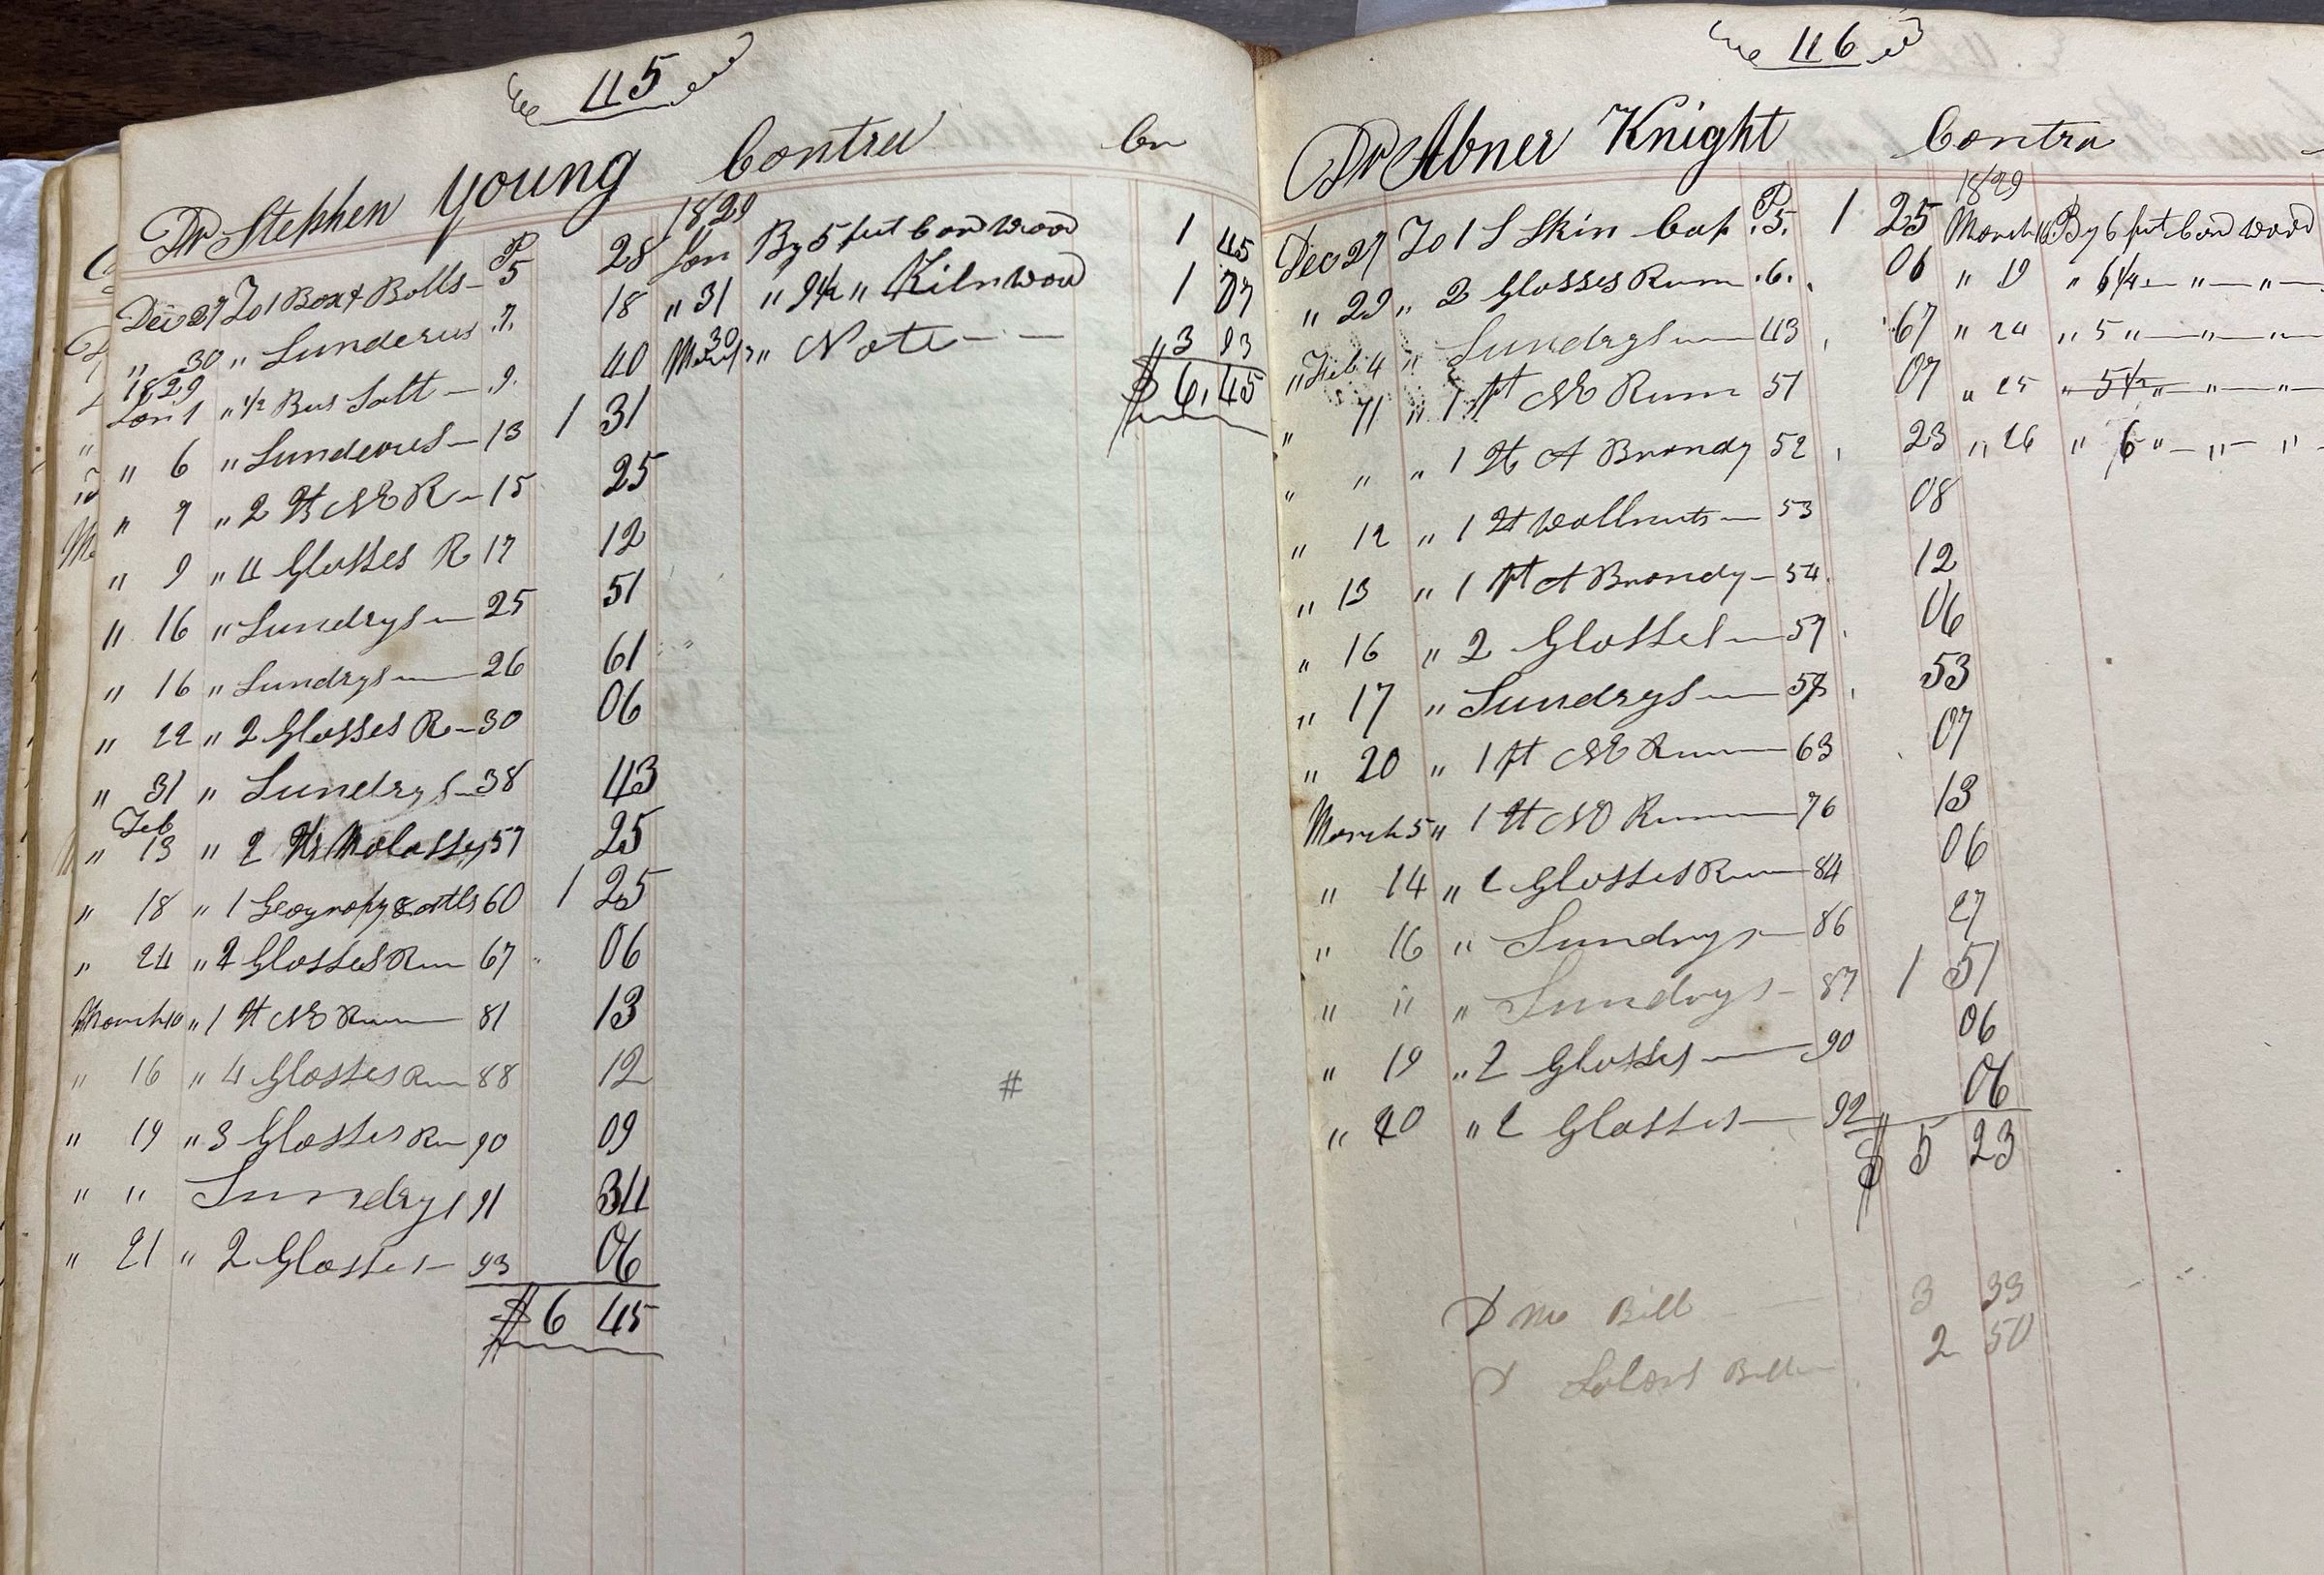 45
Dr Stephen Young Contra Cr
P 1829
Dec 27 To 1 Box & Bolls 5 28 Jan By 5 feet Cord Wood 1 45
" 30 " Sunderies 7 18 " 31 " 9 1/2 " Kilnwood 1 07
1829
Jan 1 " 1/2 Bus Salt 9 40 30 " Note 3 93
" 6 " Sunderies 13 1 31 $ 6,45
" 7 " 2 qt NE R 15 25
" 9 " 4 Glasses R 17 12
" 16 " Sundrys 25 51
" 16 " Sundrys 26 61
" 22 " 2 Glasses R 30 06
" 31 " Sundrys 38 43
Feb
" 13 " 2 qts Molasses 57 25
" 18 " 1 Geography & atls 60 1 25
" 24 " 2 Glasses Rum 67 06
March 10 " 1 qt NE Rum 81 13
" 16 " 4 Glasses Rum 88 12
#
" 19 " 3 Glasses Rum 90 09
" " Sundrys 91 34
" 21 " 2 Glasses 93 06
$ 6 45
46
Dr Abner Knight Contra
P 1829
Dec 27 To 1 S Skin Cap 5 1 25 March 16 By 6 feet Cord Wood
" 29 " 2 Glasses Rum 6 06 " 19 " 6 1/4 " "
" Feb 4 " Sundrys 43 67 " 24 " 5 " " "
" 11 " 1 pt NE Rum 51 07 " 25 " 5 1/2 " " "
" " " 1 qt A Brandy 52 23 " 26 " 6 " " "
" 12 " 1 qt Wallnuts 53 08
" 13 " 1 pt A Brandy 54 12
" 16 " 2 Glasses 57 06
" 17 " Sundrys 58 53
" 20 " 1 pt NE Rum 63 07
March 5 " 1 qt NE Rum 76 13
" 14 " 2 Glasses Rum 84 06
" 16 " Sundrys 86 27
" " " Sundrys 87 1 51
" 19 " 2 Glasses 90 06
" 20 " 2 Glasses 92 06
$ 5 23
Bill 3 33
Bill 2 50